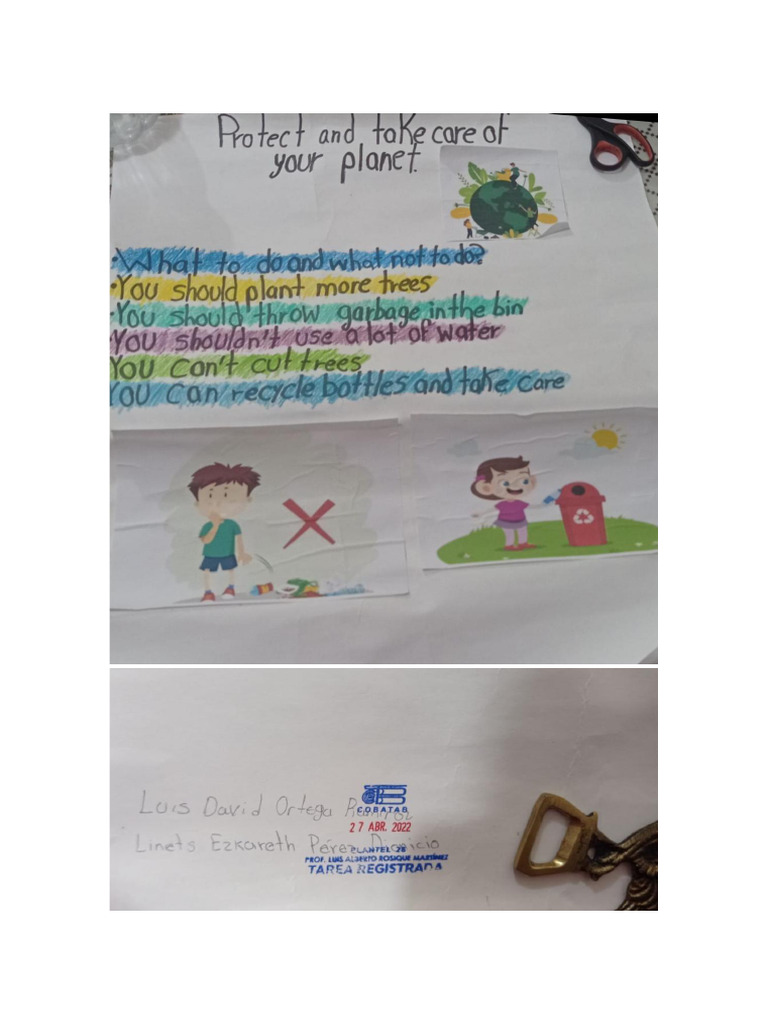 Protect and take care of
your planet.
·What to do and what not to do?
·You should plant more trees
·You should throw garbage in the bin
·You shouldn't use a lot of water
You can't cut trees
You can recycle bottles and take care
Luis David Ortega Ramirez
COBATAB
27 ABR. 2022
Linets Ezkareth Pérez Dionicio
PLANTEL 28
PROF. LUIS ALBERTO BOSIQUE MARTÍNEZ
TAREA REGISTRADA